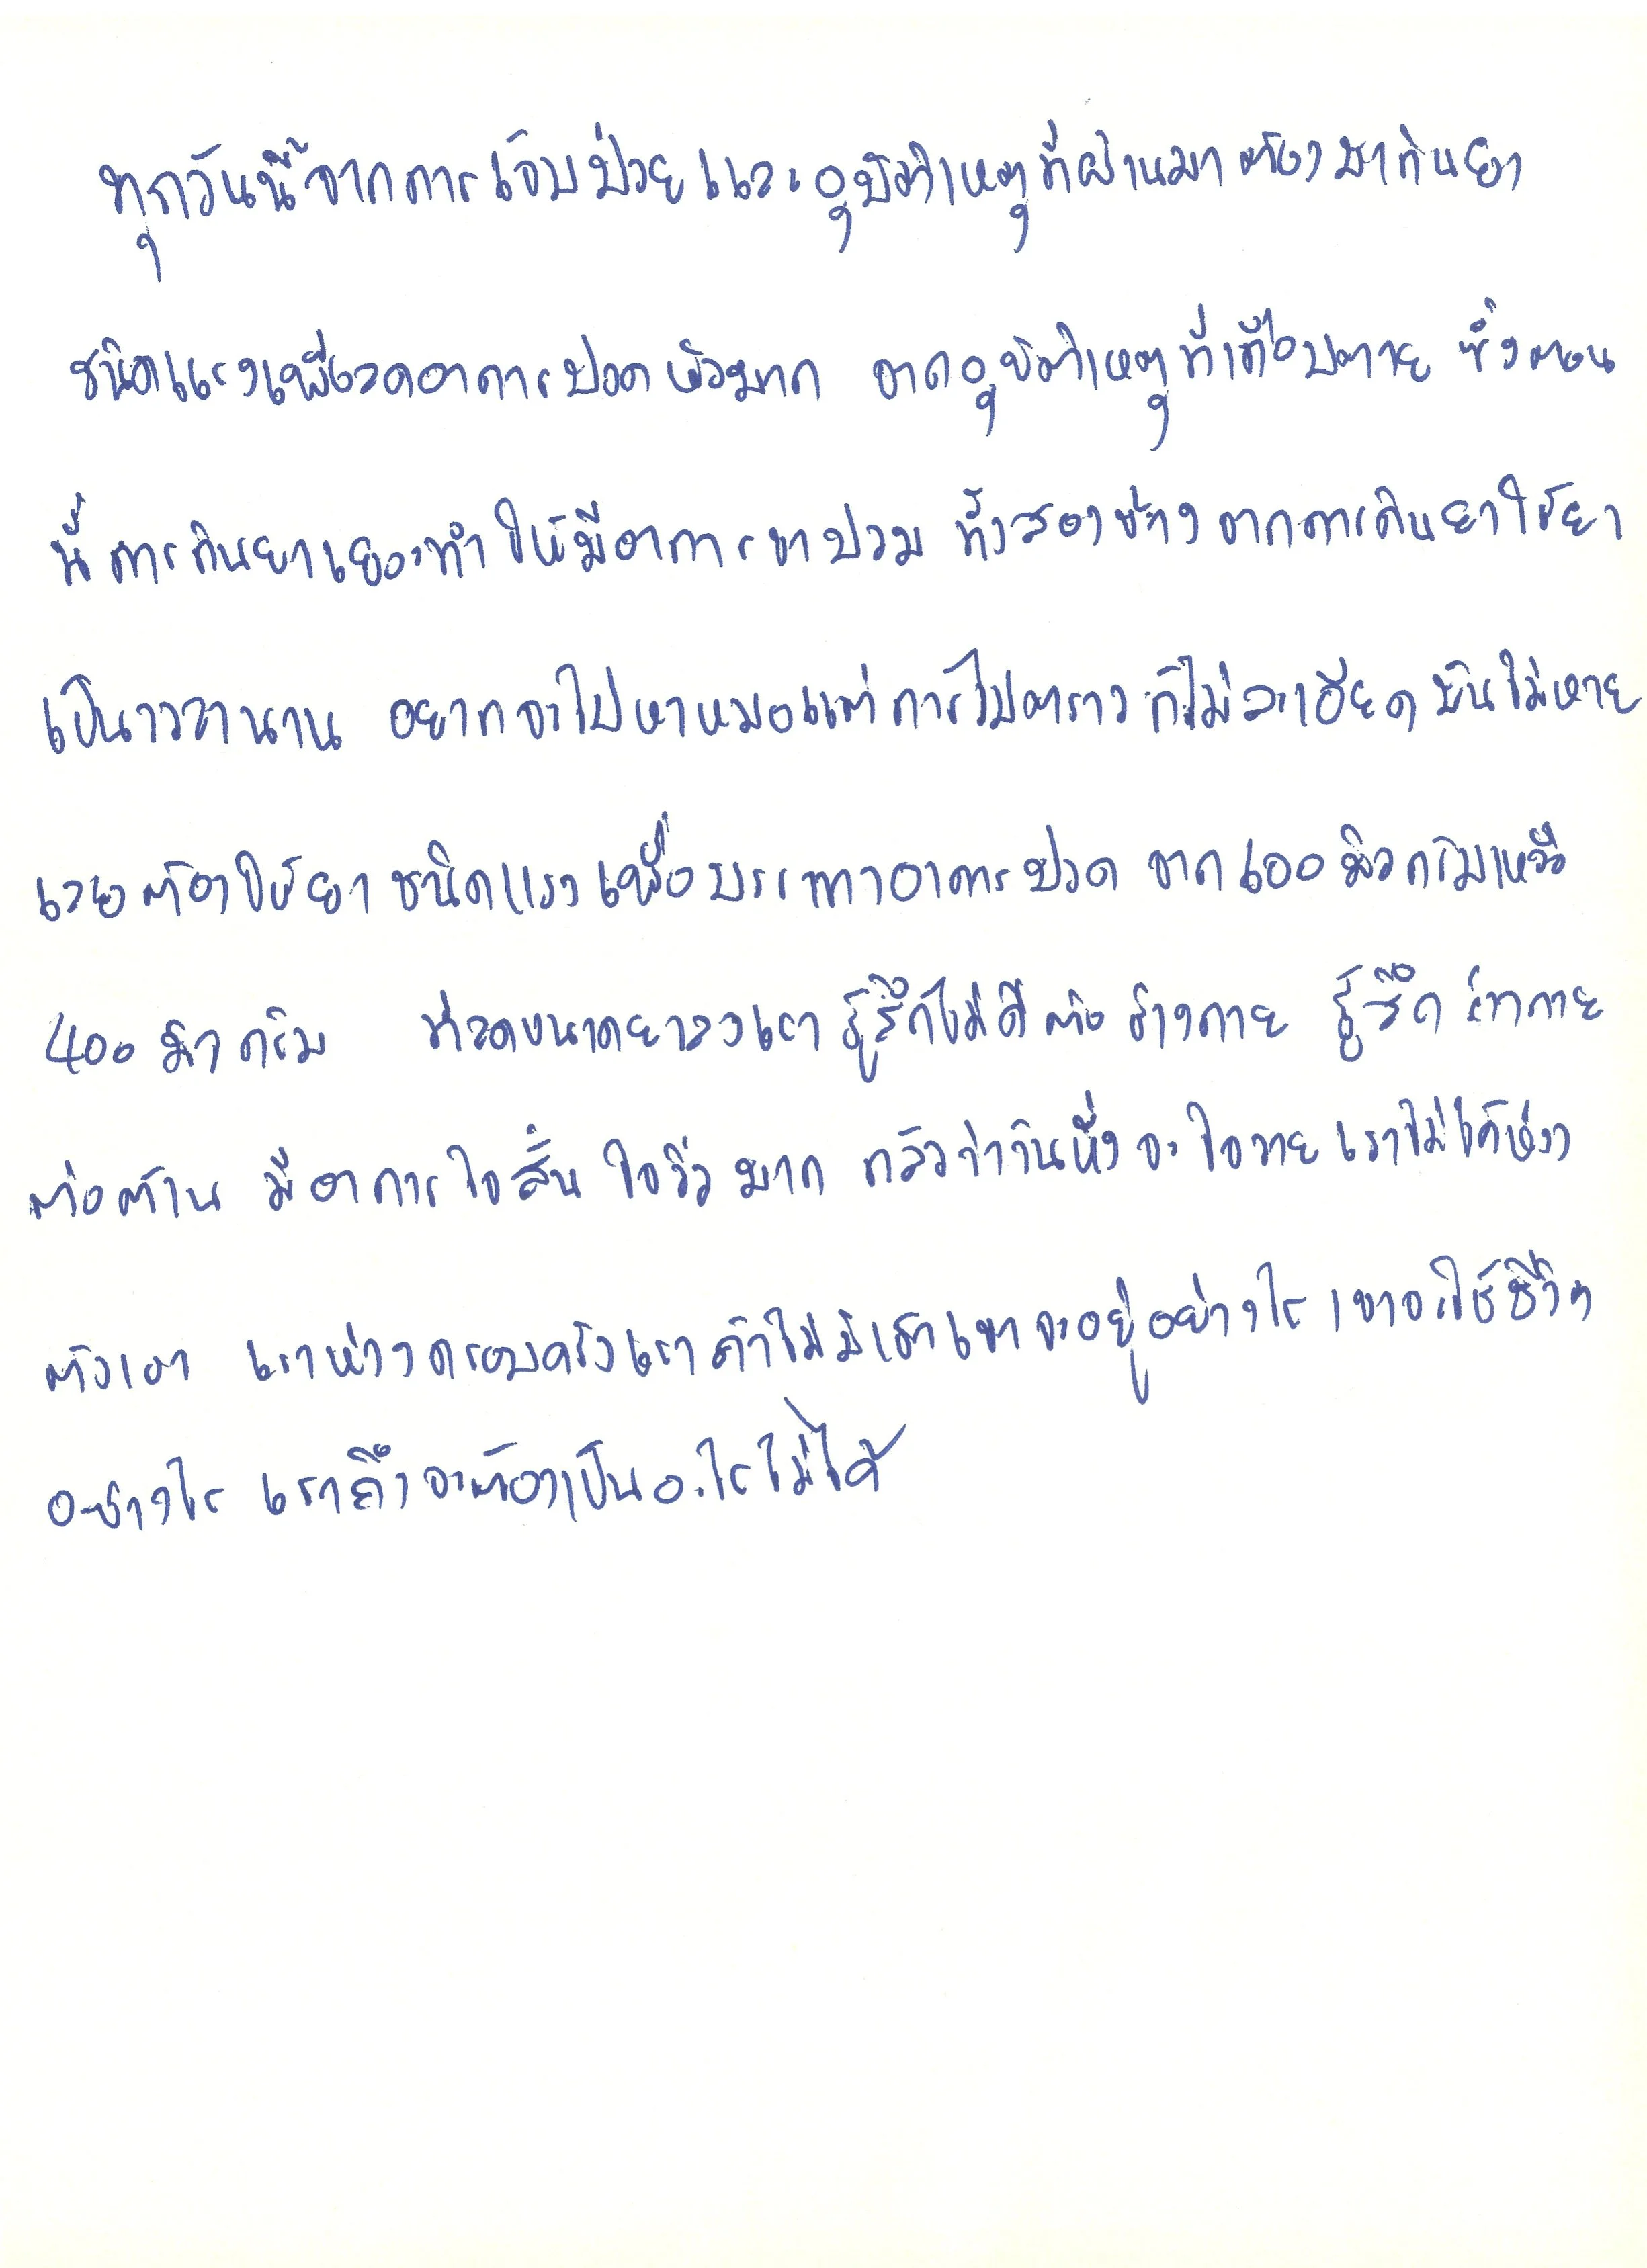 ทุกวันนี้จากการเจ็บป่วยและอุบัติเหตุที่ผ่านมาต้องมากินยา
ชนิดแรงเพื่อลดอาการปวดหัวมาก จากอุบัติเหตุที่เกือบตาย ซึ่งตอน
นี้การกินยาเยอะทำให้มีอาการขาบวม ทั้งสองข้าง จากการกินยาใช้ยา
เป็นเวลานาน อยากจะไปหาหมอแต่การไปตรวจ ก็ไม่ละเอียด มันไม่หาย
เลยต้องใช้ยาชนิดแรงเพื่อบรรเทาอาการปวด จาก มิลกรัมเหลือ
400 มิลกรัม ที่ลดขนาดยาลงเรารู้สึกไม่ดีต่อร่างกาย รู้สึกร่างกาย
ต่อต้าน มีอาการใจสั่น ใจวิวมาก กลัวว่าวันหนึ่งจะใจวายเราไม่ได้ห่วง
ตัวเรา เราห่วงครอบครัวเรา ถ้าไม่มีเราเขาจะอยู่อย่างไร เขาจะใช้ชีวิต
อย่างไร เราถึงจะต้องเป็นอะไรไม่ได้